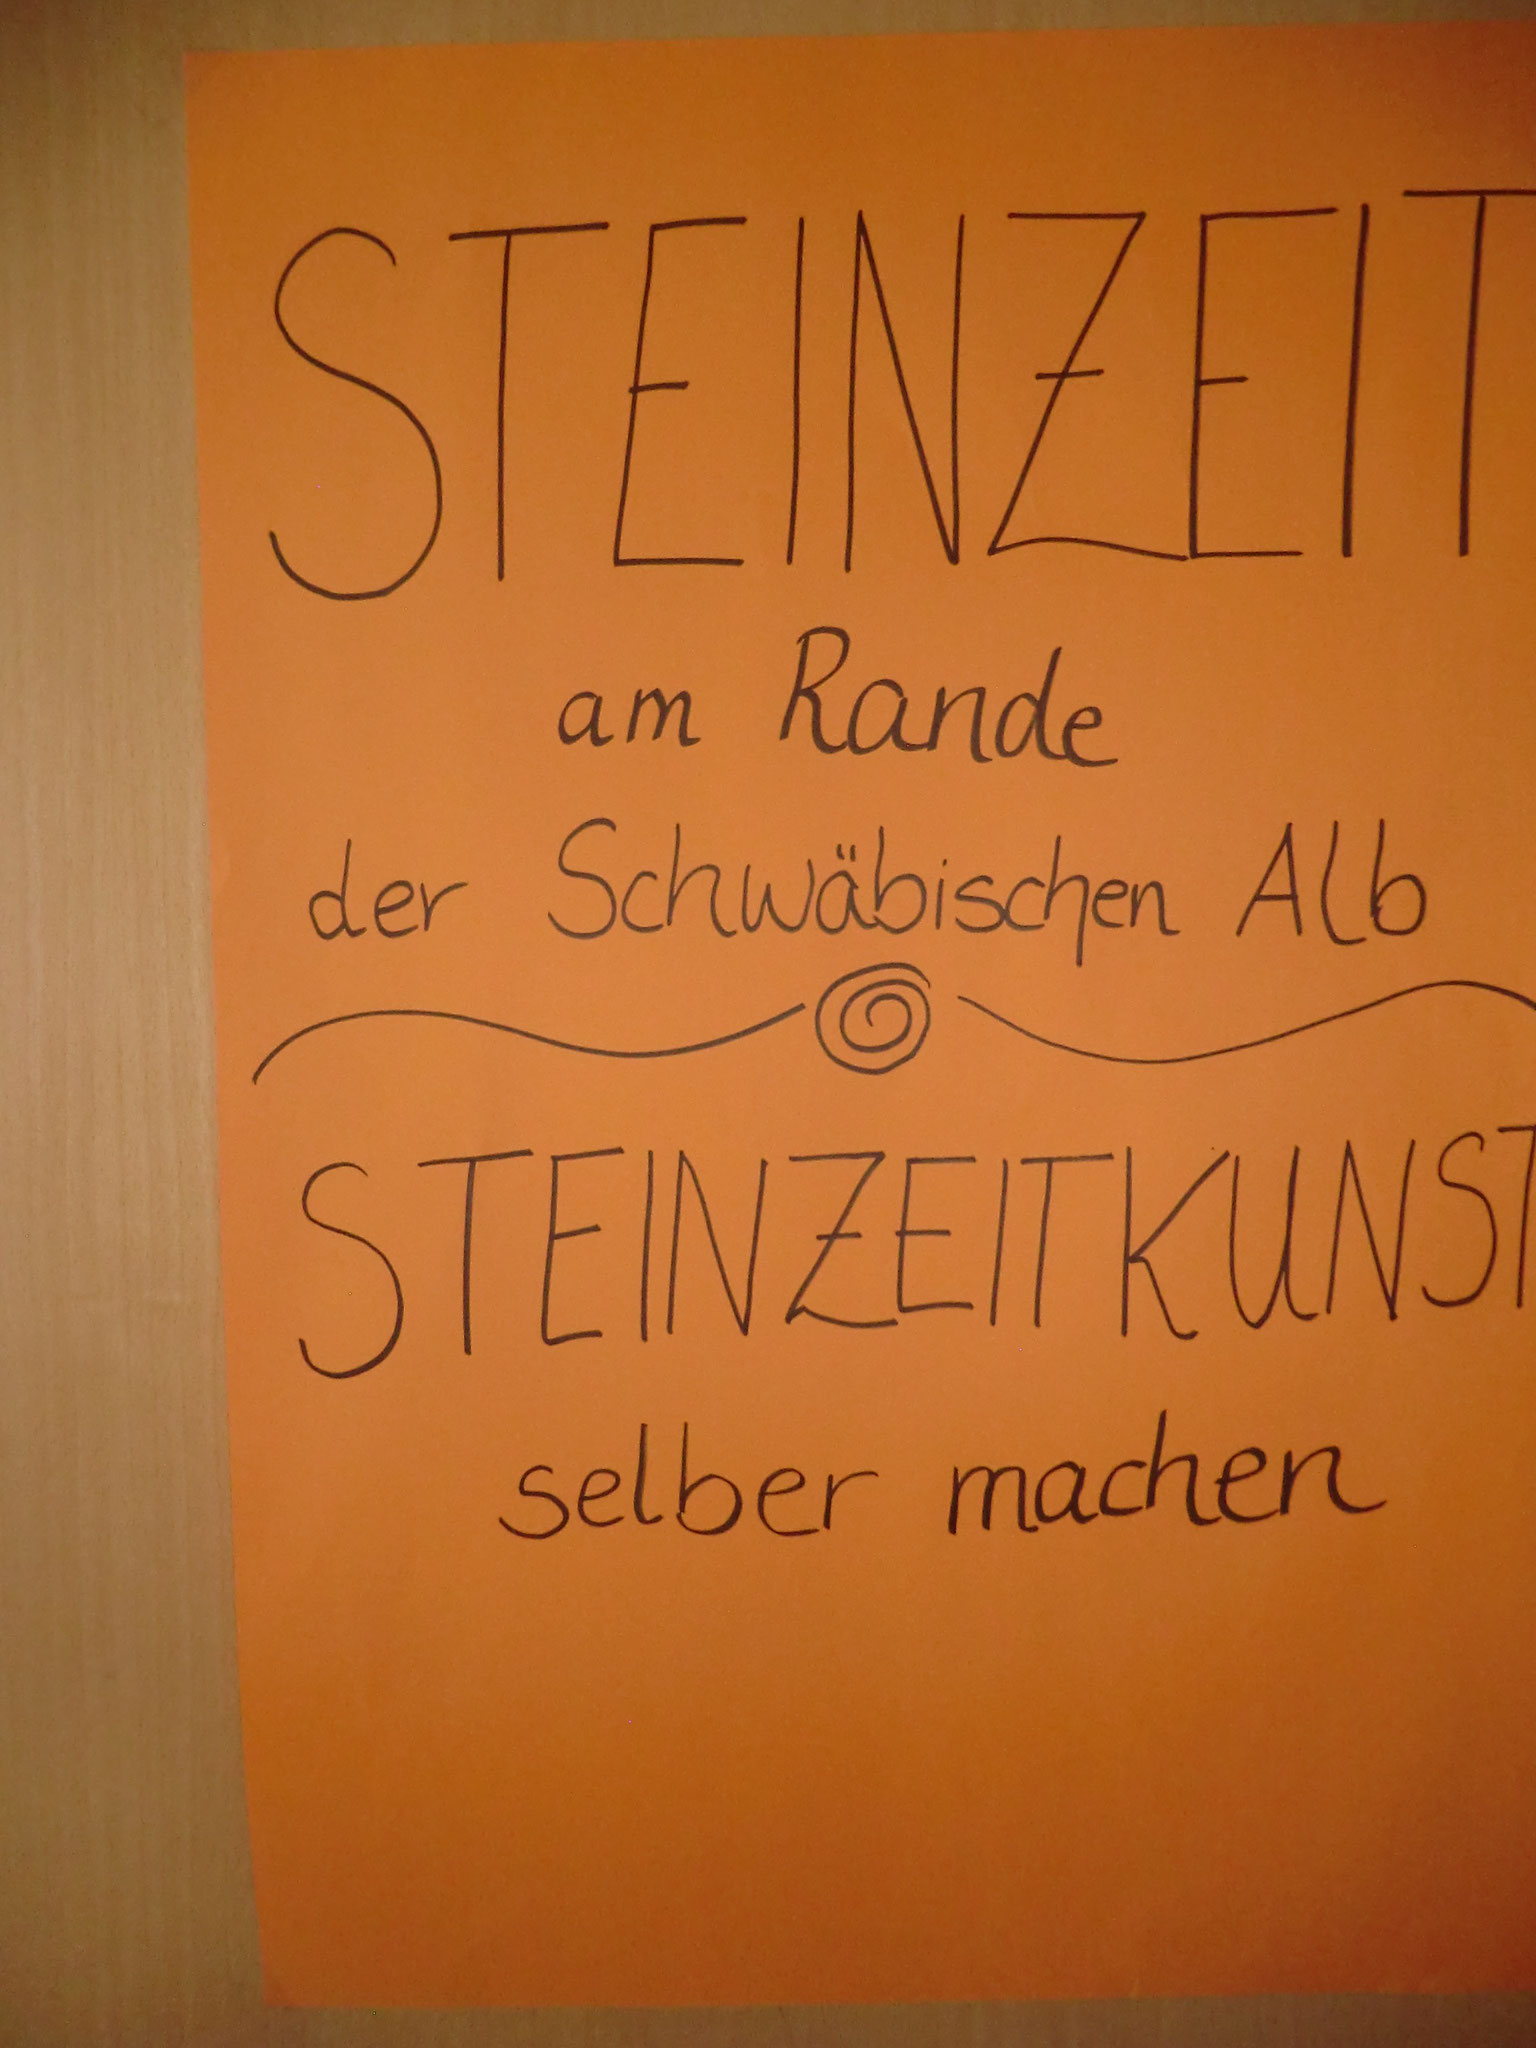 STEINZEIT
am Rande
der Schwäbischen Alb
STEINZEITKUNST
selber machen